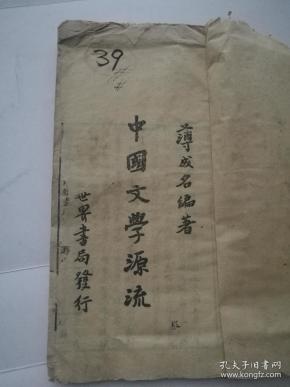 39
薄成名編著
中國文學源流
世界書局發行
孔夫子旧书网